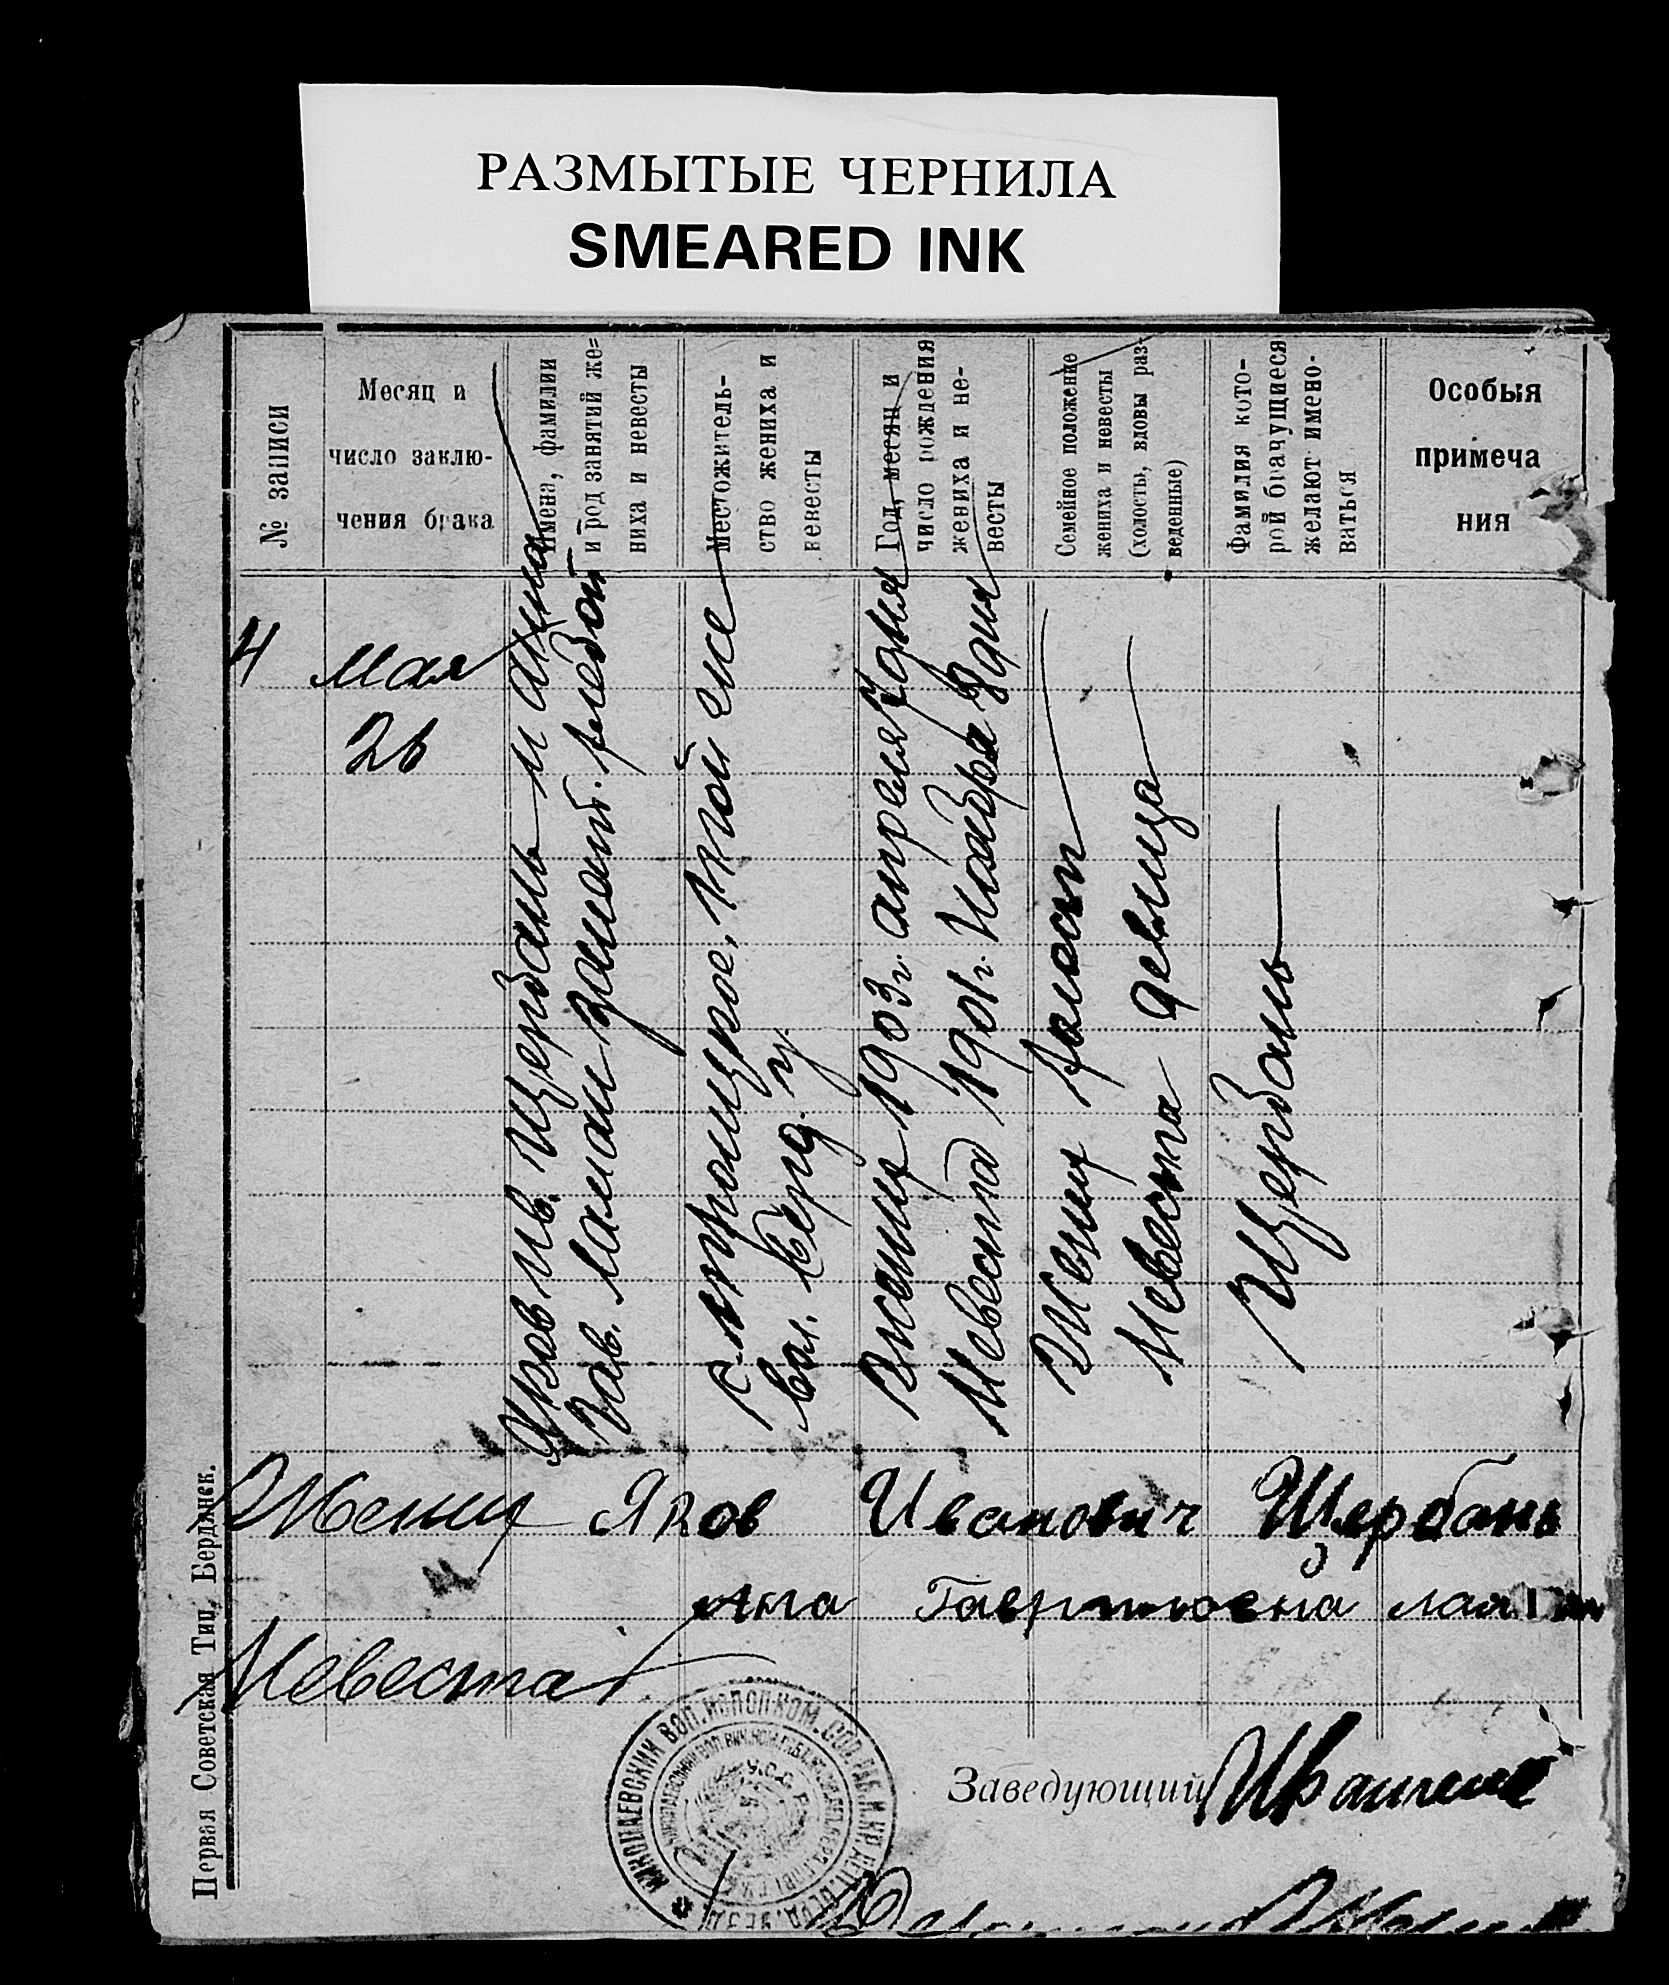 РАЗМЫТЫЕ ЧЕРНИЛА
SMEARED INK
№ записи
Месяц и
число заклю-
чения брака
Имена, фамилии
и род занятий же=
ниха и невесты
Местожитель-
ство жениха и
невесты
Год, месяц и
число рождения
жениха и не-
весты
Семейное положение
жениха и невесты
(холосты, вдовы раз-
веденные)
Фамилия кото-
рой брачущиеся
желают имено-
ваться
Особыя
примеча
ния
4
мая
26
Яков Ив. Щербань и Анна
Гав. хлебоп
с. Троицкое, той же
вол. Берд. у.
Жених 1903 г. апреля 7 дня
Невеста 1901 г. Ноября 8 дня
Жених холост
Невеста девица
Щербань
Жених Яков Иванович Щербань
Анна Гавриловна
Невеста
Заведующий
НИКОЛАЕВСКИЙ ВОЛ. ИСПОЛКОМ.
У.С.С.Р.
Первая Советская Тип. Бердянск.